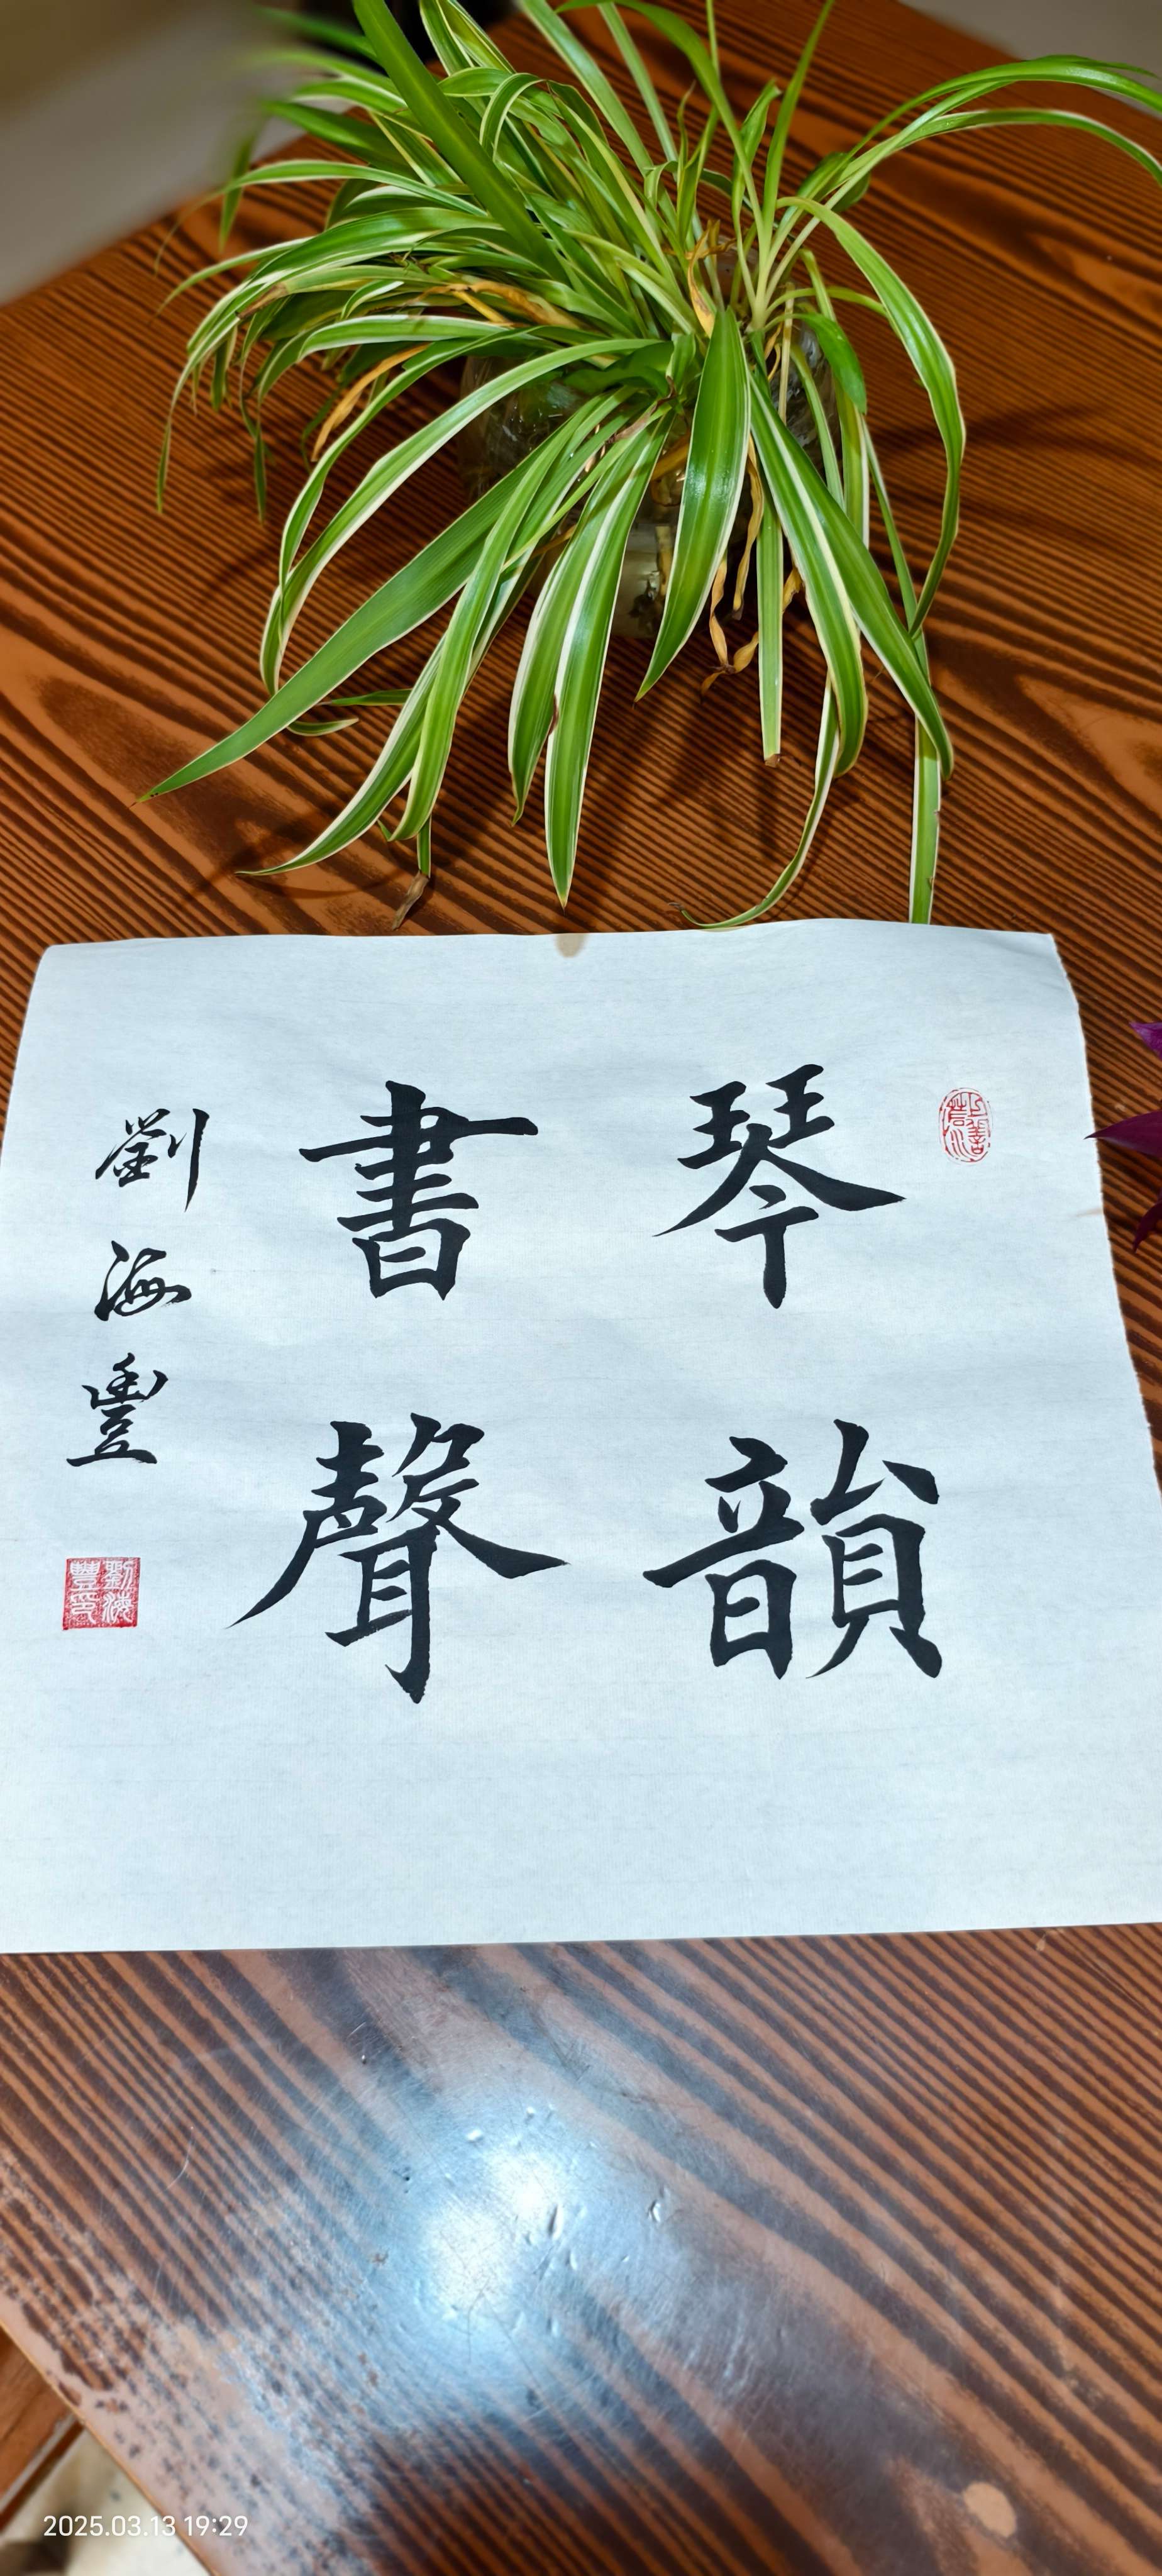 琴韻
書聲
劉海豐
劉海豐印
2025.03.13 19:29